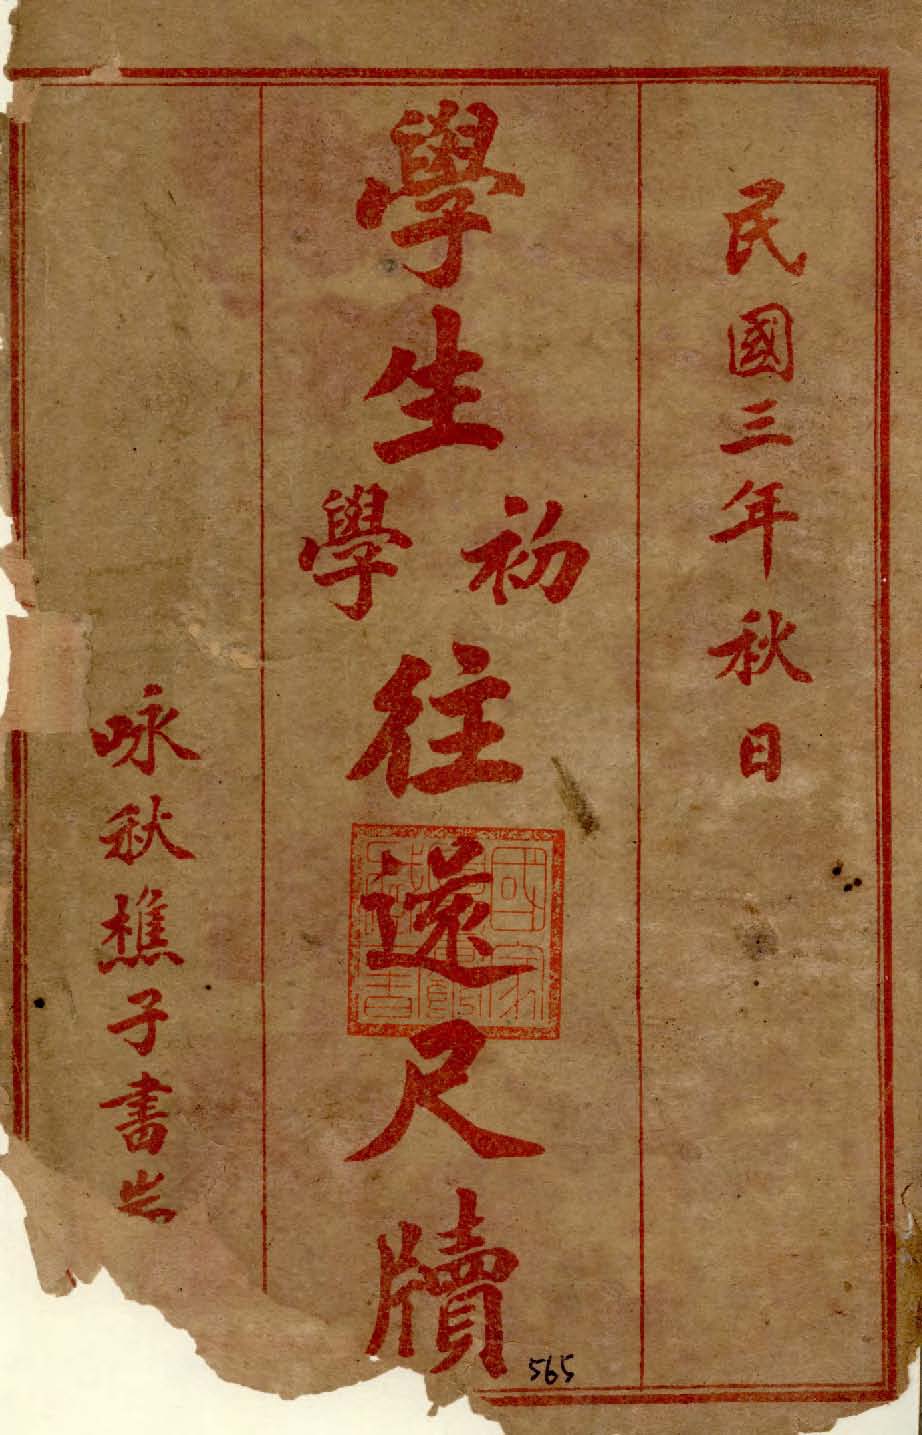 民國三年秋日
學生初學往還尺牘
咏秋樵子書
565